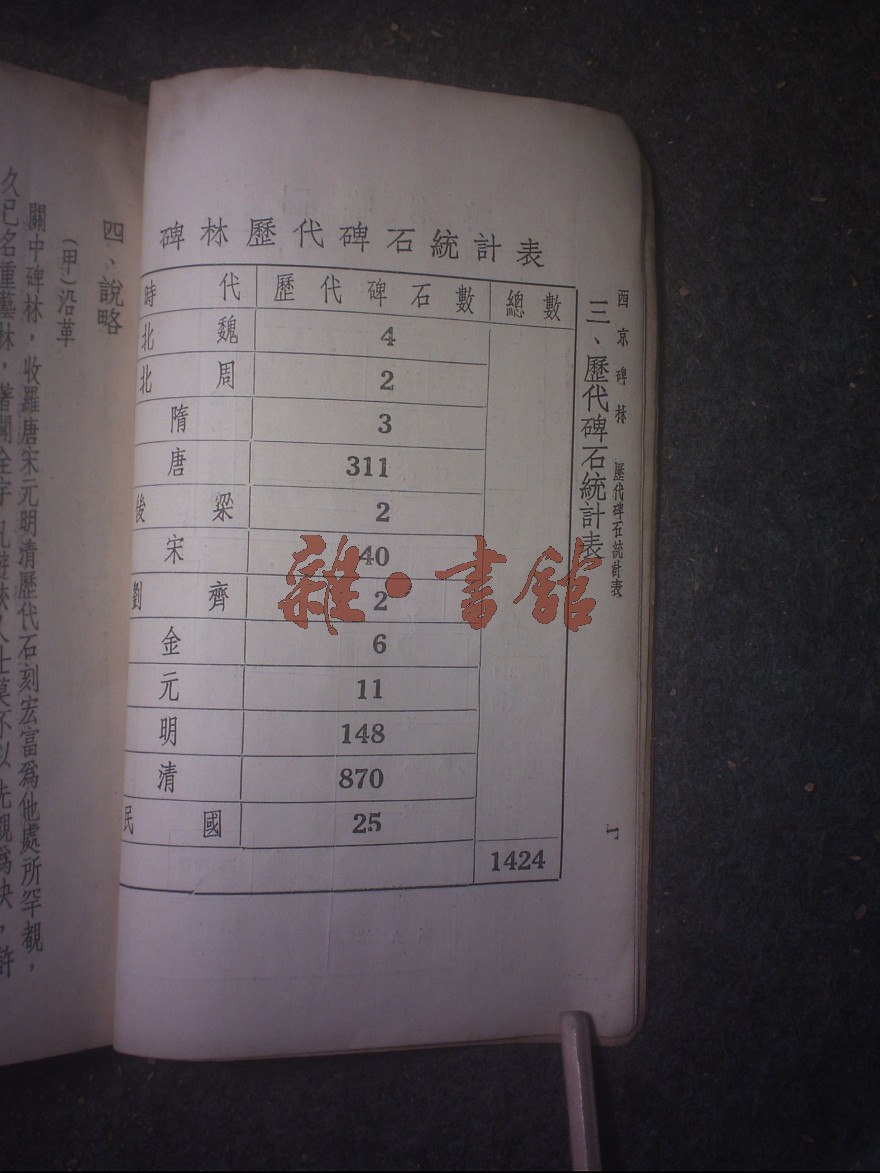 西京碑林 歷代碑石統計表
三、歷代碑石統計表
碑林歷代碑石統計表
時代 歷代碑石數 總數
北魏 4
北周 2
隋 3
唐 311
後梁 2
宋 40
劉齊 2
金 6
元 11
明 148
清 870
民國 25
1424
雜·書館
四、說略
(甲)沿革
關中碑林，收羅唐宋元明清歷代石刻宏富爲他處所罕覩，
久已名重藝林，著聞全宇